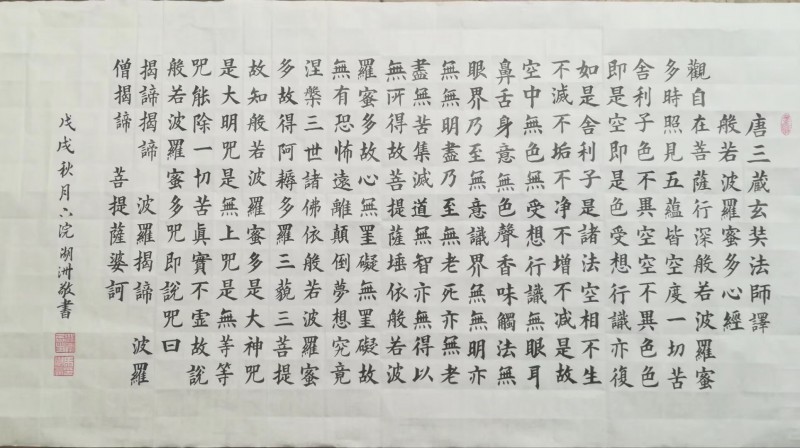 唐三蔵玄奘法師譯
般若波羅蜜多心經
觀自在菩薩行深般若波羅蜜
多時照見五蘊皆空度一切苦
舍利子色不異空空不異色色
即是空即是色受想行識亦復
如是舍利子是諸法空相不生
不滅不垢不净不增不减是故
空中無色無受想行識無眼耳
鼻舌身意無色聲香味觸法無
眼界乃至無意識界無無明亦
無無明盡乃至無老死亦無老
盡無苦集滅道無智亦無得以
無所得故菩提薩埵依般若波
羅蜜多故心無罣礙無罣礙故
無有恐怖遠離顛倒夢想究竟
涅槃三世諸佛依般若波羅蜜
多故得阿耨多羅三藐三菩提
故知般若波羅蜜多是大神咒
是大明咒是無上咒是無等等
咒能除一切苦真實不虛故説
般若波羅蜜多咒即說咒曰
揭諦揭諦 波羅揭諦 波羅
僧揭諦 菩提薩婆訶
戊戌秋月六浣湖洲敬書